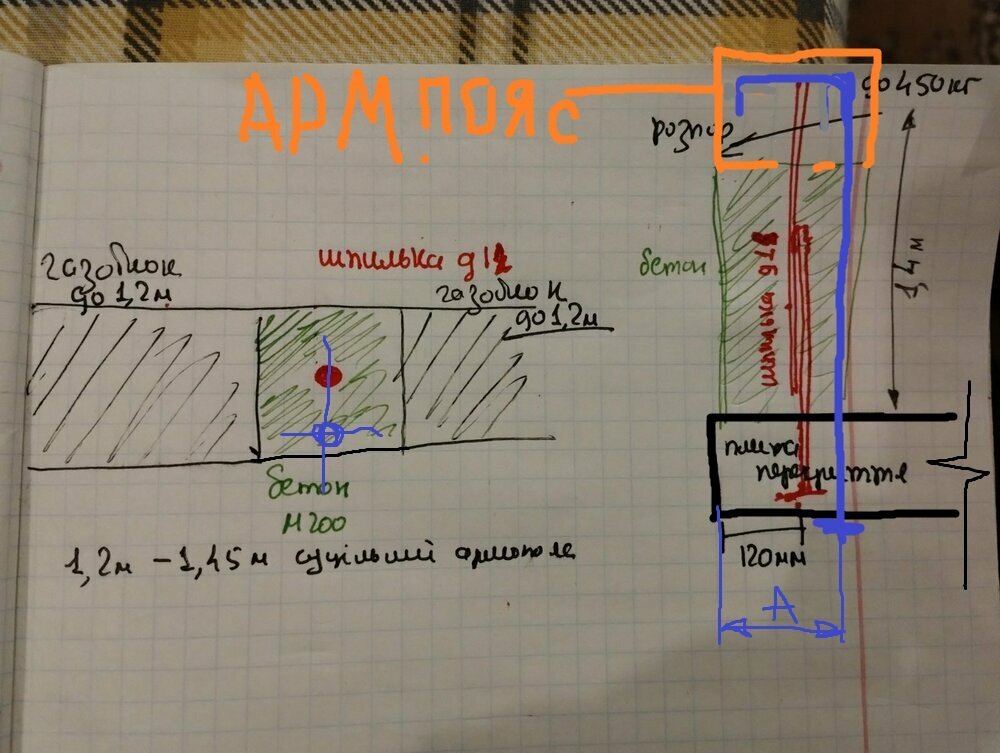 АРМ.ПОЯС
до 450 кг
розпор
газоблок
до 1,2м
шпилька д12
газоблок
до 1,2м
бетон
шпилька
1,4м
плита
перекриття
бетон
М200
120мм
1,2м – 1,45м суцільний армопояс
А